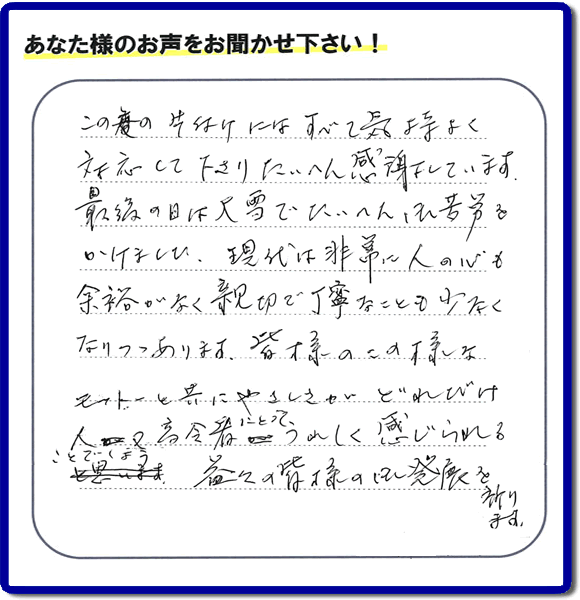 あなた様のお声をお聞かせ下さい！
この度の片付けにはすべて気持よく
対応して下さりたいへん感謝しています。
最後の日は大雪でたいへん御苦労を
かけました。現代は非常に人の心も
余裕がなく親切で丁寧なことも少なく
なりつつあります。皆様のこの様な
モットーと共にやさしさが どれだけ
人 又高令者にとってうれしく感じられる
ことでしょう
と思います。益々の皆様の御発展を
祈り
ます。